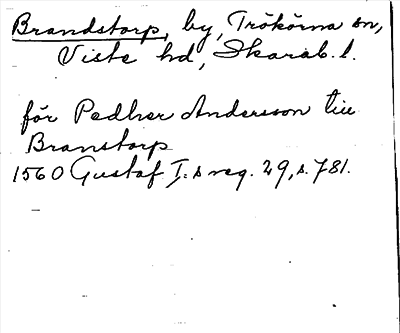 Brandstorp, by, Trökörna sn,
Viste hd, Skarab. l.
för Pedher Andersson till
Branstorp
1560 Gustaf I:s reg. 29, s. 781.